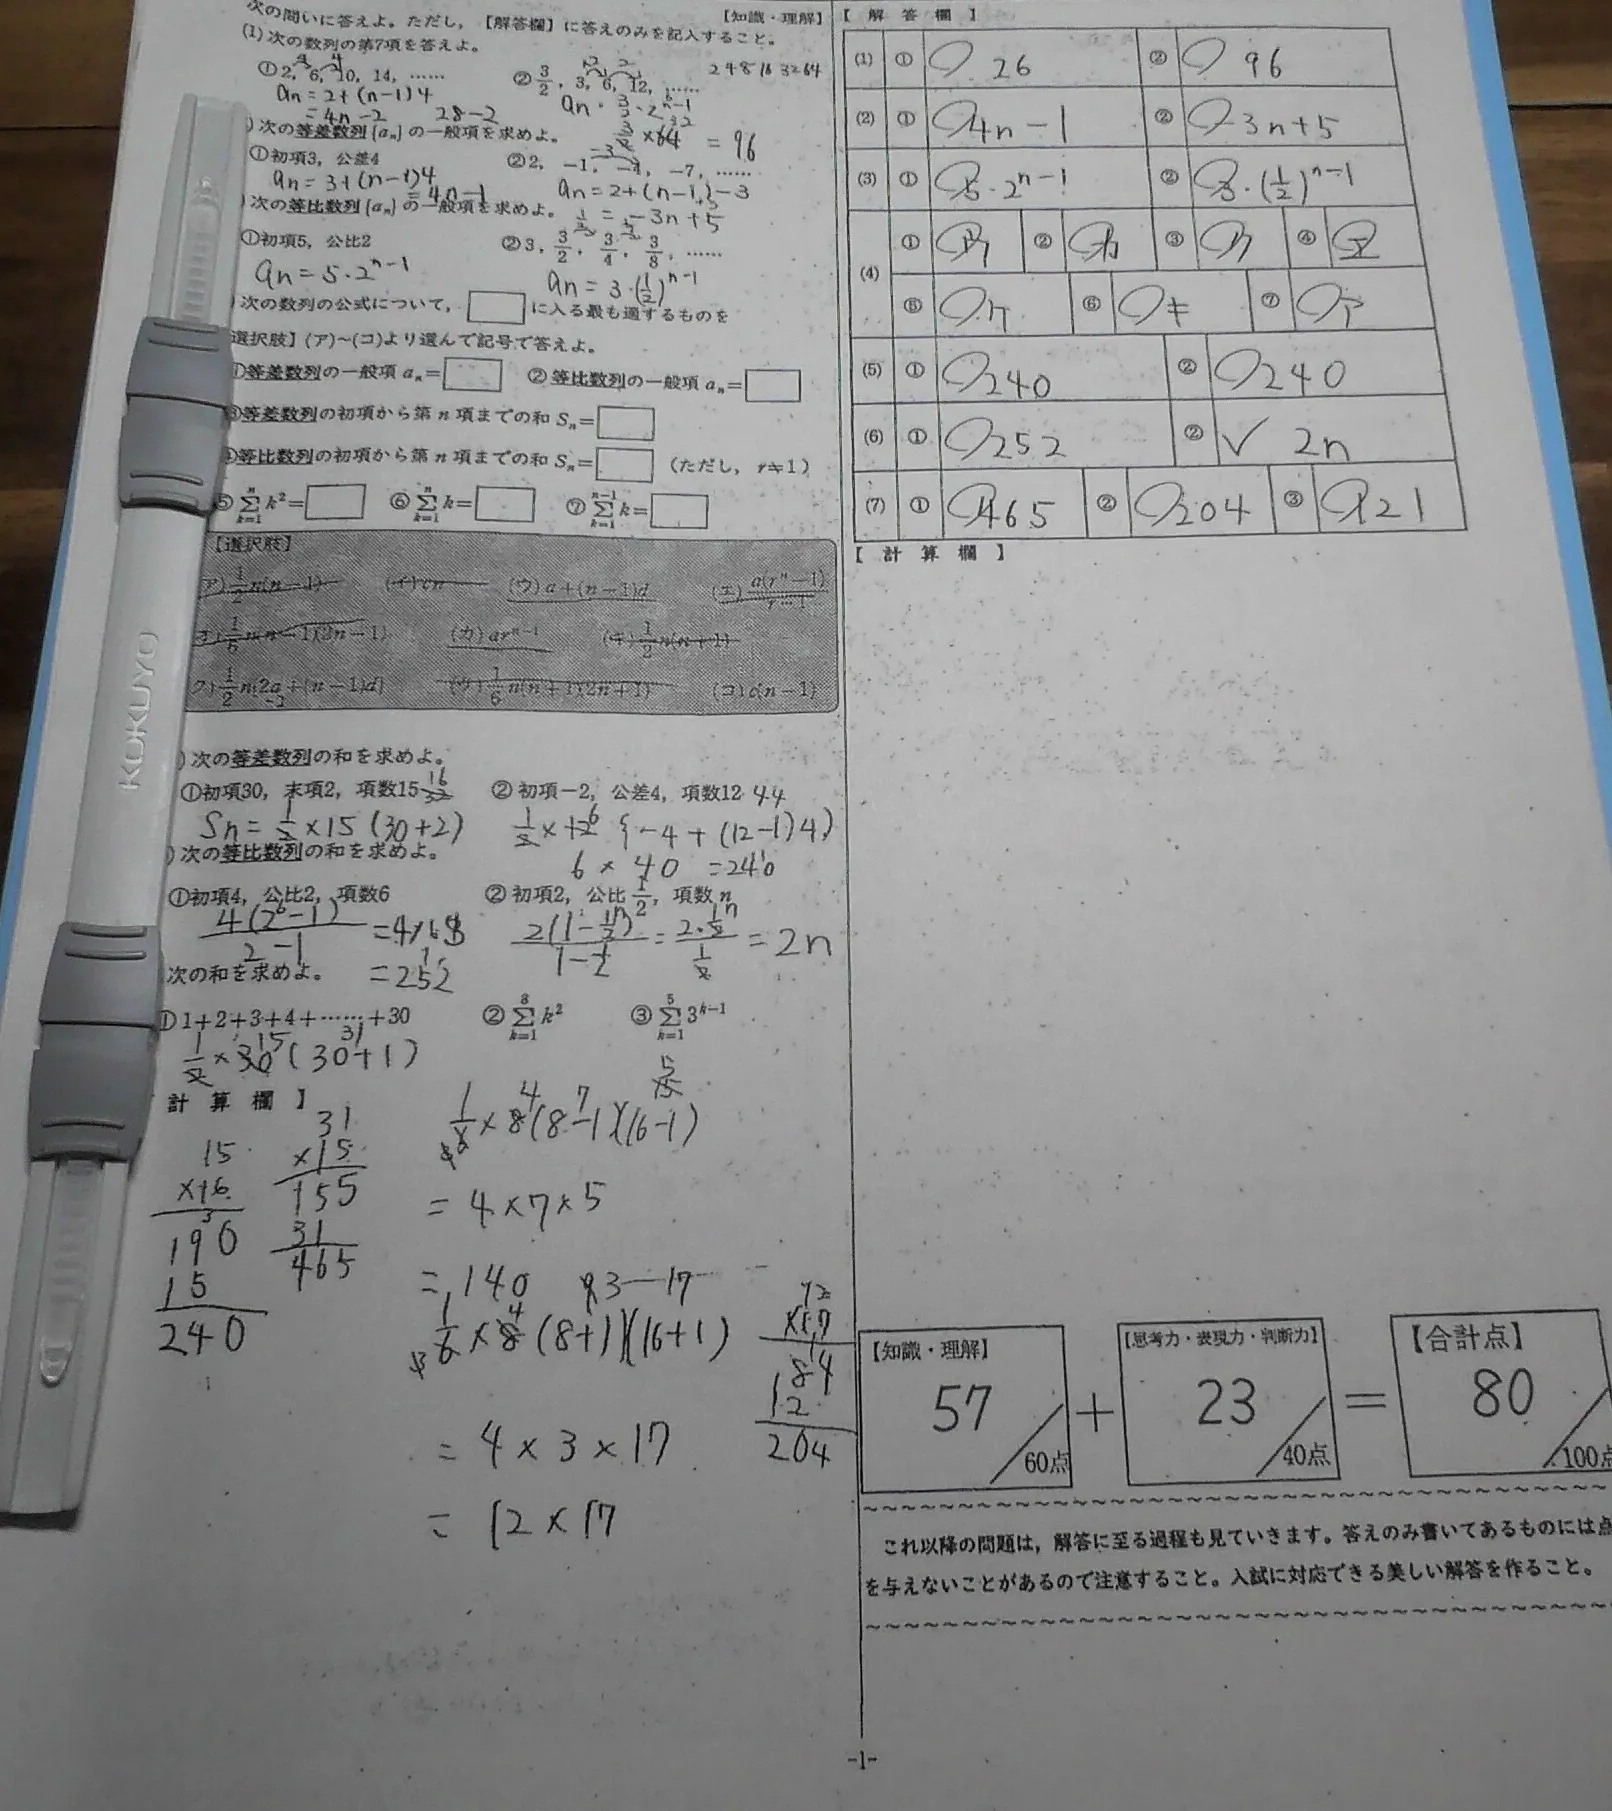 次の問いに答えよ。ただし,【解答欄】に答えのみを記入すること。
【知識・理解】
(1) 次の数列の第7項を答えよ。
① 2, 6, 10, 14, ……
② 3/2, 3, 6, 12, ……
2 4 8 16 32 64
an = 2+(n-1)4
= 4n-2 28-2
an = 3/2・2^n-1
= 96
)次の等差数列{an}の一般項を求めよ。
①初項3, 公差4
② 2, -1, -4, -7, ……
an = 3+(n-1)4
= 4n-1
an = 2+(n-1)-3
= -3n+5
)次の等比数列{an}の一般項を求めよ。
①初項5, 公比2
② 3, 3/2, 3/4, 3/8, ……
an = 5・2^n-1
an = 3・(1/2)^n-1
)次の数列の公式について, に入る最も適するものを
選択肢】(ア)~(コ)より選んで記号で答えよ。
①等差数列の一般項 an=
② 等比数列の一般項 an=
等差数列の初項から第 n 項までの和 Sn=
等比数列の初項から第 n 項までの和 Sn= (ただし, r≠1)
⑤ Σ[k=1,n] k²=
⑥ Σ[k=1,n] k=
⑦ Σ[k=1,n-1] k=
【選択肢】
ア) 1/2 n(n-1) (イ) cn (ウ) a+(n-1)d (エ) a(r^n-1)/r-1
1/6 n(n-1)(2n-1) (カ) ar^n-1 (キ) 1/2 n(n+1)
ク) 1/2 n{2a+(n-1)d} (ケ) 1/6 n(n+1)(2n+1) (コ) c(n-1)
)次の等差数列の和を求めよ。
①初項30, 末項2, 項数15
② 初項-2, 公差4, 項数12 44
Sn = 1/2 × 15 (30+2)
1/2 × 12 {-4+(12-1)4}
6 × 40 = 240
)次の等比数列の和を求めよ。
①初項4, 公比2, 項数6
② 初項2, 公比 1/2, 項数 n
4(2^6-1)/2-1 = 4×63
= 252
= 2n
次の和を求めよ。
① 1+2+3+4+……+30
② Σ[k=1,8] k²
③ Σ[k=1,5] 3^k-1
1/2 × 30 (30+1)
計 算 欄 】
15
×16
190
15
240
31
×15
155
31
465
1/6 × 8(8-1)(16-1)
= 4×7×5
= 140
1/6 × 8 (8+1)(16+1)
= 4 × 3 × 17
= 12 × 17
12
×17
84
12
204
【 解 答 欄 】
(1) ① 26 ② 96
(2) ① 4n-1 ② -3n+5
(3) ① 5・2^n-1 ② 3・(1/2)^n-1
(4) ① ウ ② カ ③ ク ④ エ
⑤ ケ ⑥ キ ⑦ ア
(5) ① 240 ② 240
(6) ① 252 ② 2n
(7) ① 465 ② 204 ③ 121
【 計 算 欄 】
【知識・理解】
57
60点
+
【思考力・表現力・判断力】
23
40点
=
【合計点】
80
100点
これ以降の問題は, 解答に至る過程も見ていきます。答えのみ書いてあるものには点
を与えないことがあるので注意すること。入試に対応できる美しい解答を作ること。
-1-
KOKUYO